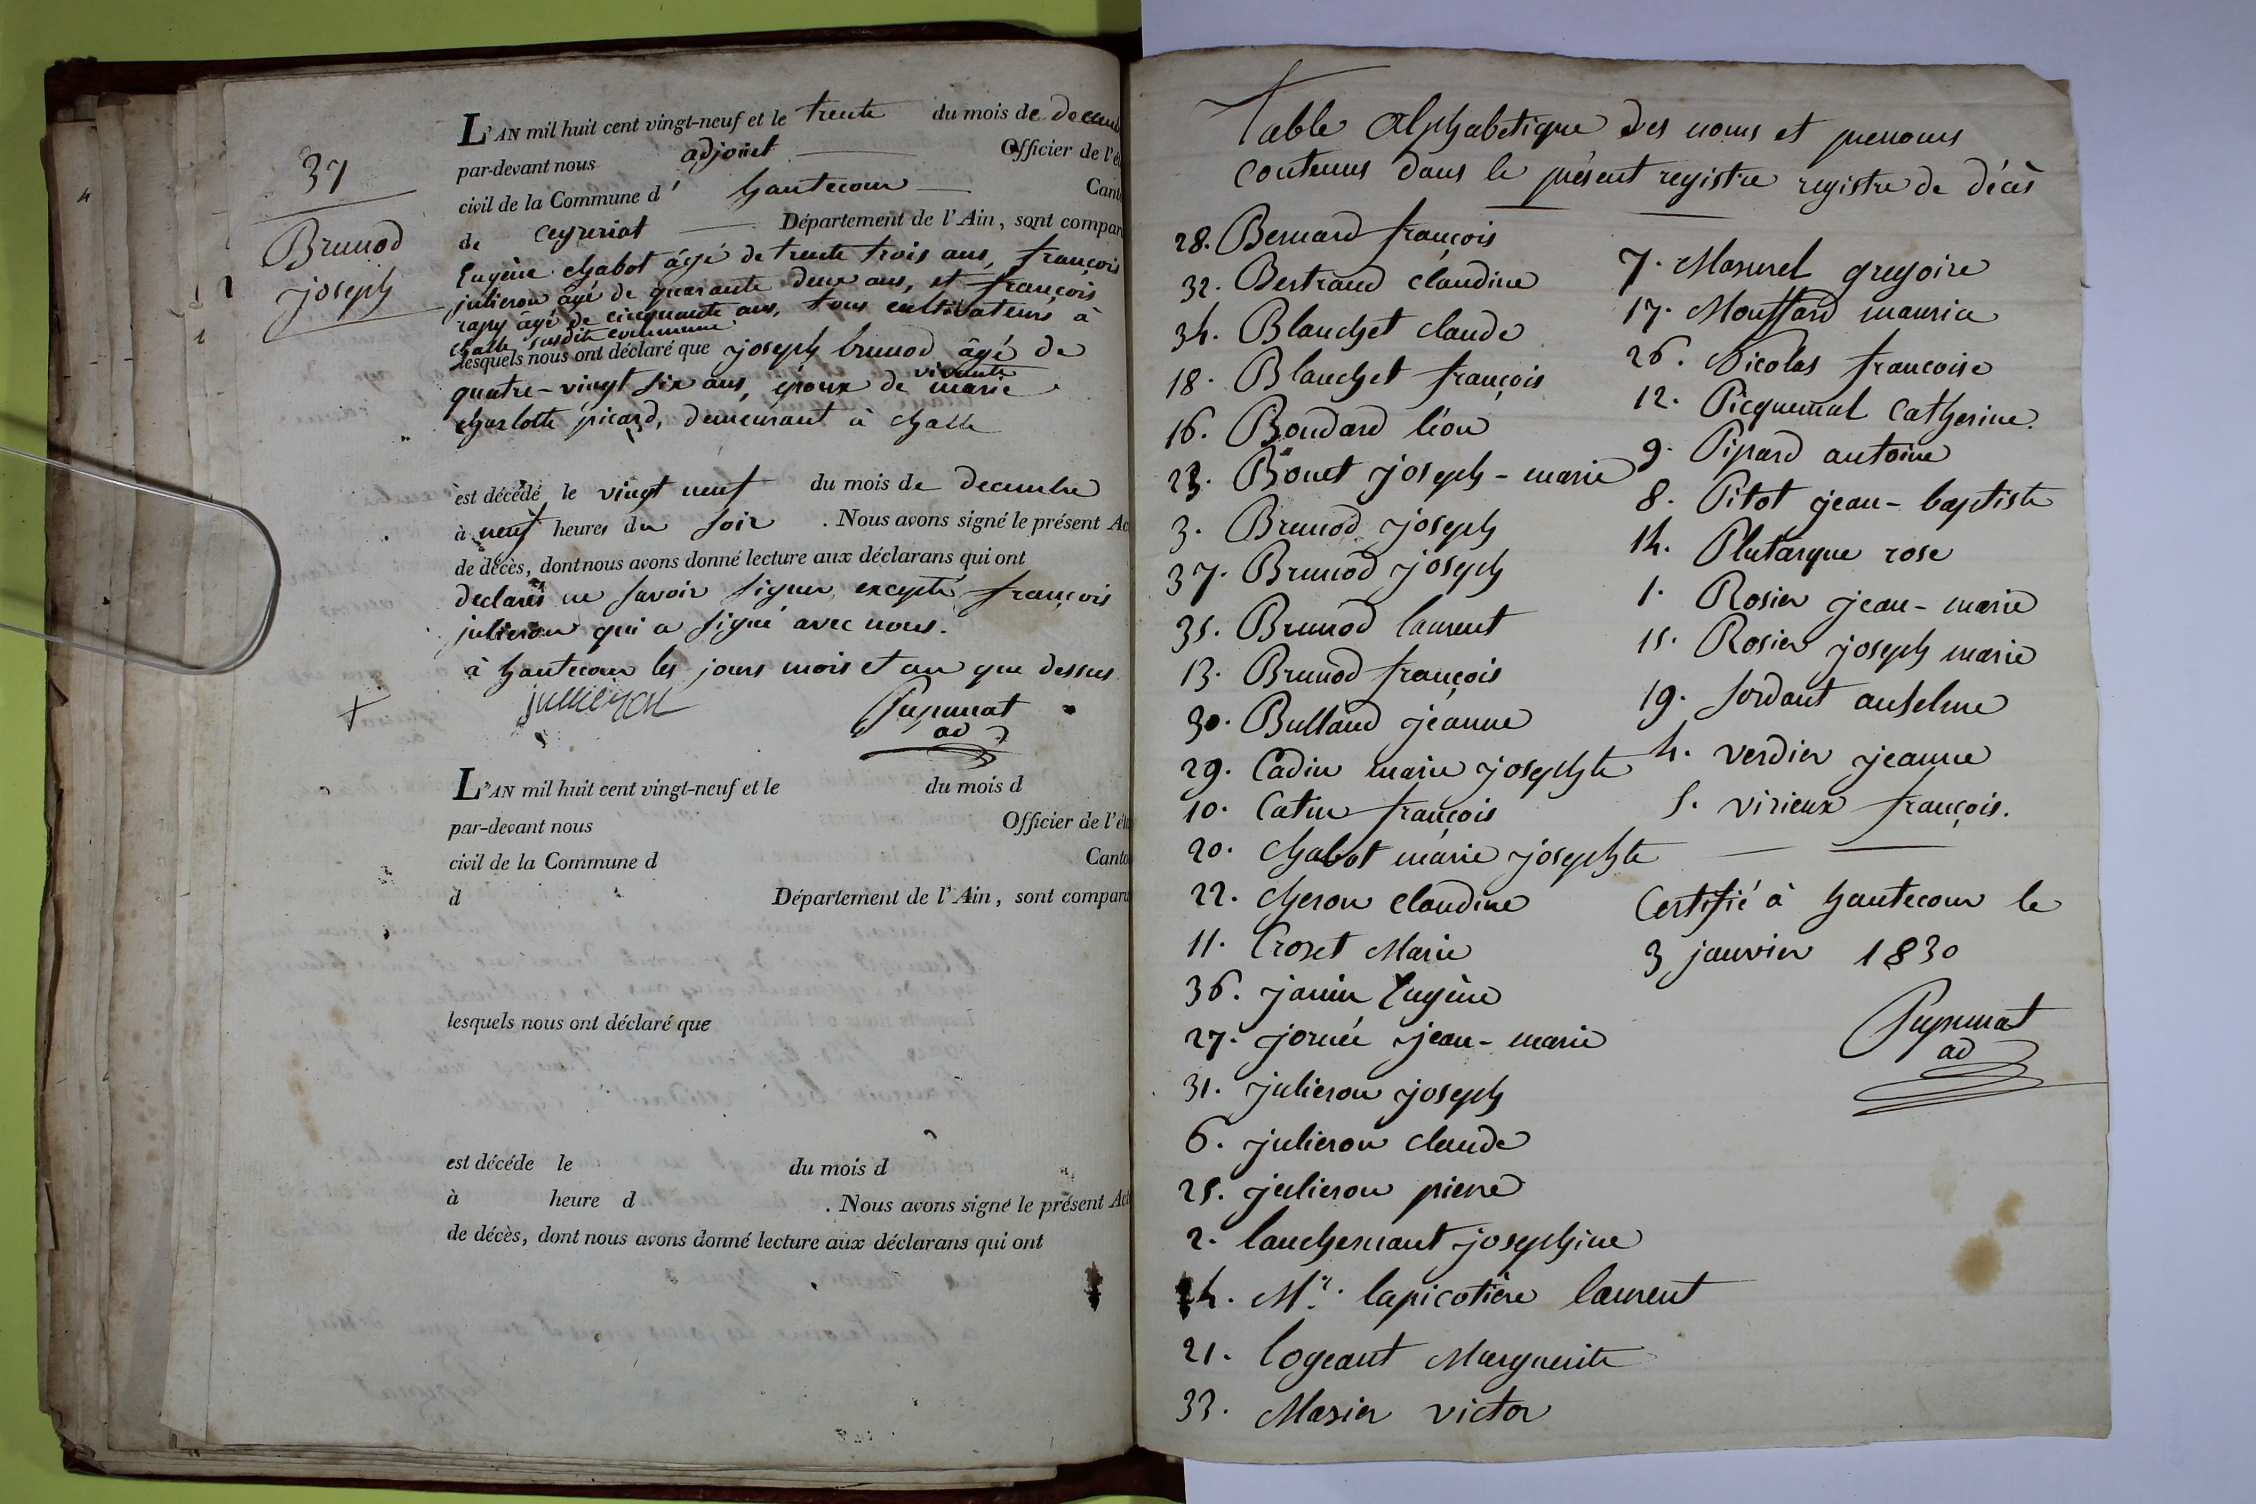 37
Brunod
joseph
L'AN mil huit cent vingt-neuf et le trente du mois de decemb
par-devant nous adjoint Officier de l'ét
civil de la Commune d' hautecour Canto
de ceyzeriat Département de l'Ain, sont compar
Eugène chabot âgé de trente trois ans, françois
julieron âgé de quarante deux ans, et françois
rapy âgé de cinquante ans, tous cultivateurs à
challe susdite commune
lesquels nous ont déclaré que joseph brunod âgé de
quatre-vingt six ans, époux de vivante marie
charlotte picard, demeurant à challe
est décédé le vingt neuf du mois de decembre
à neuf heures du soir. Nous avons signé le présent Ac
de décès, dont nous avons donné lecture aux déclarans qui ont
declarés ne savoir signer, excepté françois
julieron qui a signé avec nous.
à hautecour les jours mois et an que dessus
jullieron
Pupunat
ad
L'AN mil huit cent vingt-neuf et le du mois d
par-devant nous Officier de l'éta
civil de la Commune d Canto
d Département de l'Ain, sont compara
lesquels nous ont déclaré que
est décéde le du mois d
à heure d . Nous avons signé le présent Act
de décès, dont nous avons donné lecture aux déclarans qui ont
Table alphabetique des noms et prenoms
contenus dans le présent registre registre de décès
28. Bernard françois
32. Bertrand claudine
34. Blanchet claude
18. Blanchet françois
16. Boudard léon
23. Bouet joseph-marie
3. Brunod joseph
37. Brunod joseph
35. Brunod laurent
13. Brunod françois
30. Bulland jeanne
29. Cadin marie josephte
10. Catin françois
20. chabot marie josephte
22. cheron claudine
11. Croset Marie
36. janin Eugène
27. jornée jean-marie
31. julieron joseph
6. julieron claude
25. julieron pierre
2. lanchemant josephine
24. Mr. lapicotière laurent
21. logeant Marguerite
33. Masier victor
7. Masurel gregoire
17. Mouffard maurice
26. Nicolas francoise
12. Picquemal Catherine.
9. Pipard antoine
8. Pitot jean-baptiste
14. Plutarque rose
1. Rosier jean-marie
15. Rosier joseph marie
19. sordant anselme
4. verdier jeanne
5. virieux françois.
Certifié à hautecour le
3 janvier 1830
Pupunat
ad